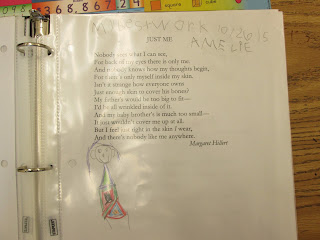 368,824
MY BEST WORK 10/26/15
AMELIE
JUST ME
Nobody sees what I can see,
For back of my eyes there is only me.
And nobody knows how my thoughts begin,
For there's only myself inside my skin.
Isn't it strange how everyone owns
Just enough skin to cover his bones?
My father's would be too big to fit—
I'd be all wrinkled inside of it.
And my baby brother's is much too small—
It just wouldn't cover me up at all.
But I feel just right in the skin I wear,
And there's nobody like me anywhere.
Margaret Hillert